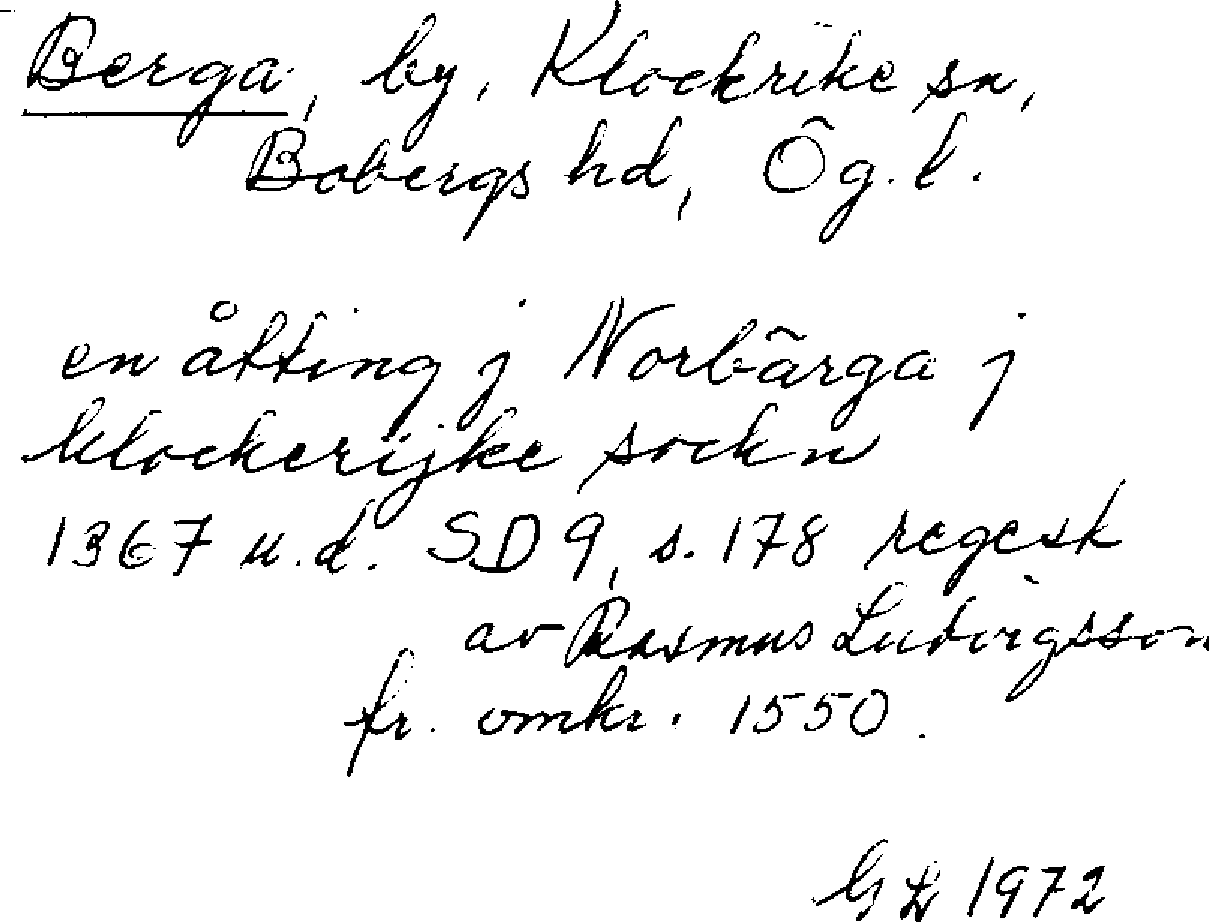 Berga, by, Klockrike sn,
Bobergs hd, Ög.l.
en åtting j Norbärga j
klockerijke sockn
1367 u.d. SD 9, s. 178 regest
av Rasmus Ludvigsson
fr. omkr. 1550.
GL 1972